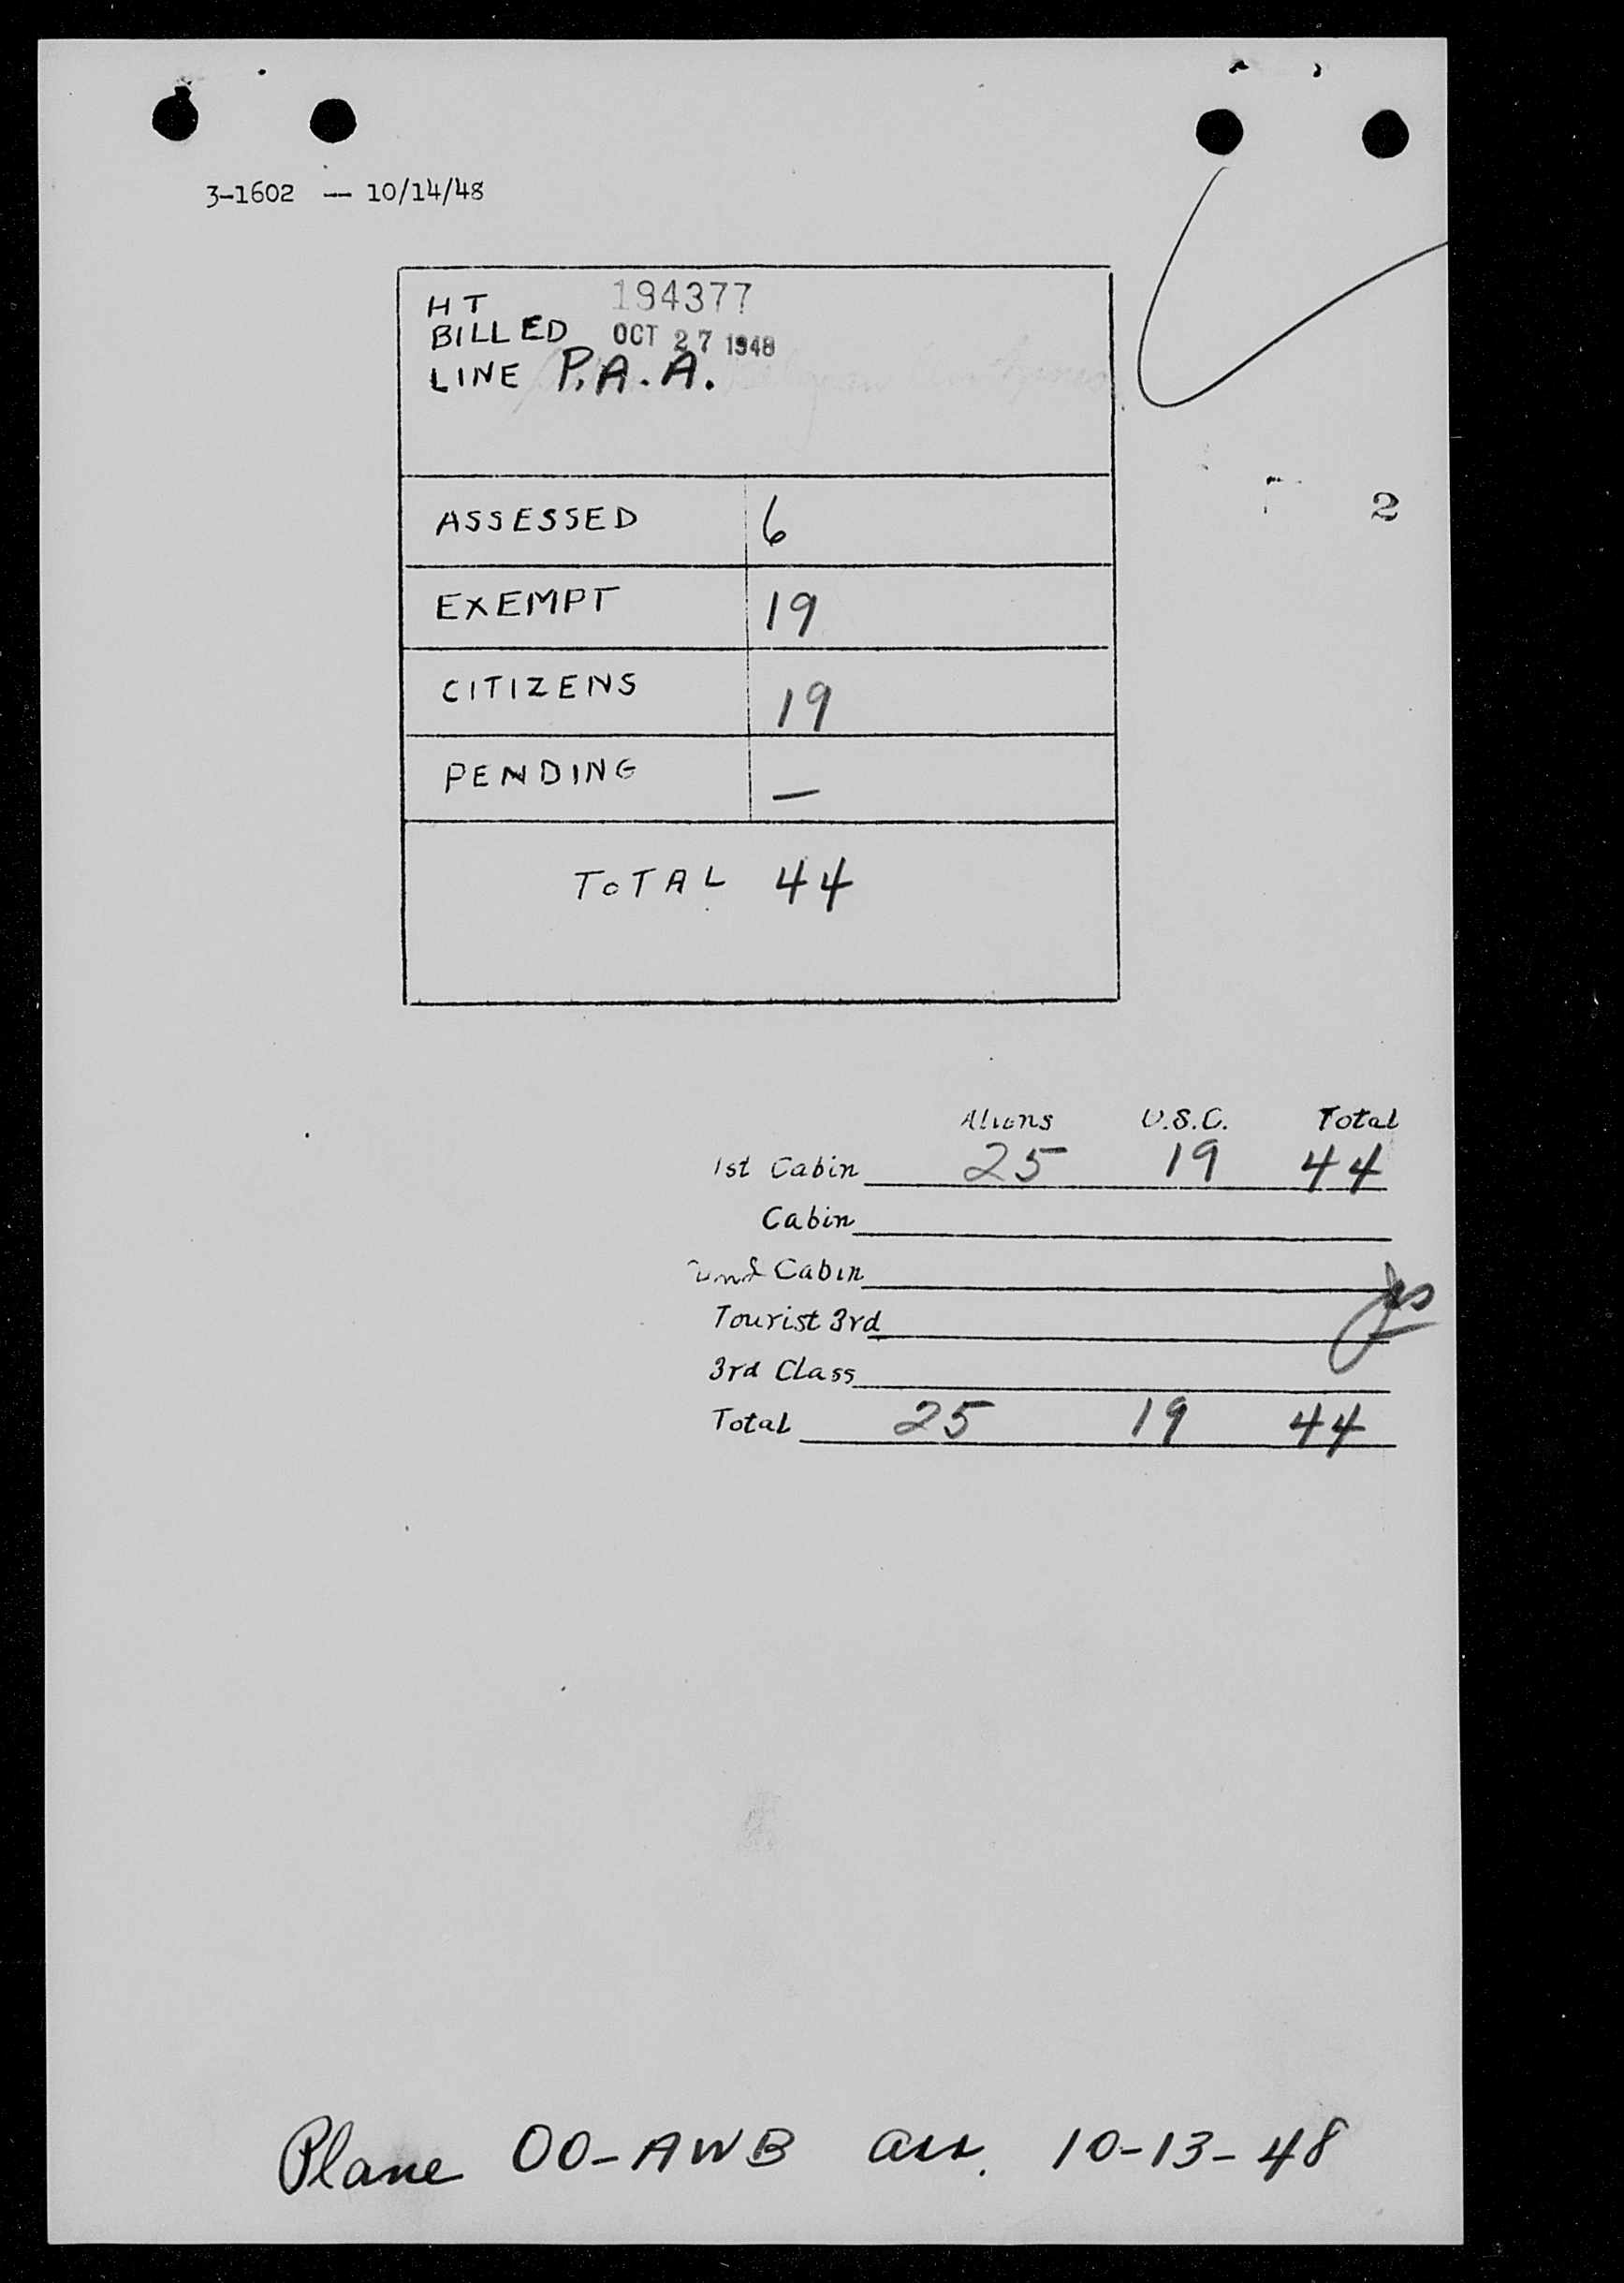 3-1602 — 10/14/48
HT 194377
BILLED OCT 27 1948
LINE P.A.A.
2
ASSESSED 6
EXEMPT 19
CITIZENS 19
PENDING —
TOTAL 44
Aliens U.S.C. Total
1st Cabin 25 19 44
Cabin
2nd Cabin
Tourist 3rd
3rd Class
Total 25 19 44
Plane OO-AWB arr. 10-13-48